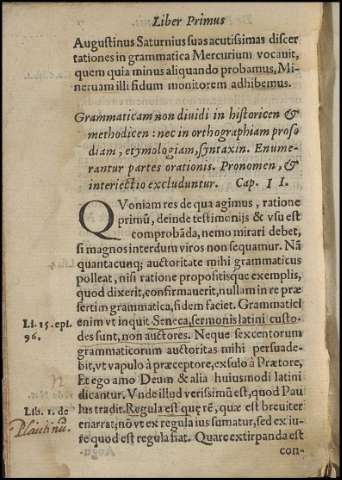 Liber Primus
Augustinus Saturnius suas acutissimas disser
tationes in grammatica Mercurium vocauit,
quem quia minus aliquando probamus, Mi-
neruam illi fidum monitorem adhibemus.
Grammaticam non diuidi in historicen &
methodicen: nec in orthographiam proso
diam, etymologiam, syntaxin. Enume-
rantur partes orationis. Pronomen, &
interiectio excluduntur. Cap. II.
QVoniam res de qua agimus, ratione
primũ, deinde testimonijs & vsu est
comprobãda, nemo mirari debet,
si magnos interdum viros non sequamur. Nã
quantacunq; auctoritate mihi grammaticus
polleat, nisi ratione propositisque exemplis,
quod dixerit, confirmauerit, nullam in re præ
sertim grammatica, fidem faciet. Grammatici
Li. 15. epi. enim vt inquit Seneca, sermonis latini custo-
96. des sunt, non auctores. Neque sexcentorum
grammaticorum auctoritas mihi persuade-
bit, vt vapulo à præceptore, exsulo à Prætore,
Et ego amo Deum & alia huiusmodi latini
dicantur. Vnde illud verissimũ est, quod Pau
Lib. 1. de lus tradit. Regula est que rẽ, quæ est breuiter
Plautinũ. enarrat; nõ vt ex regula ius sumatur, sed ex iu-
re quod est regula fiat. Quare extirpanda est
con-